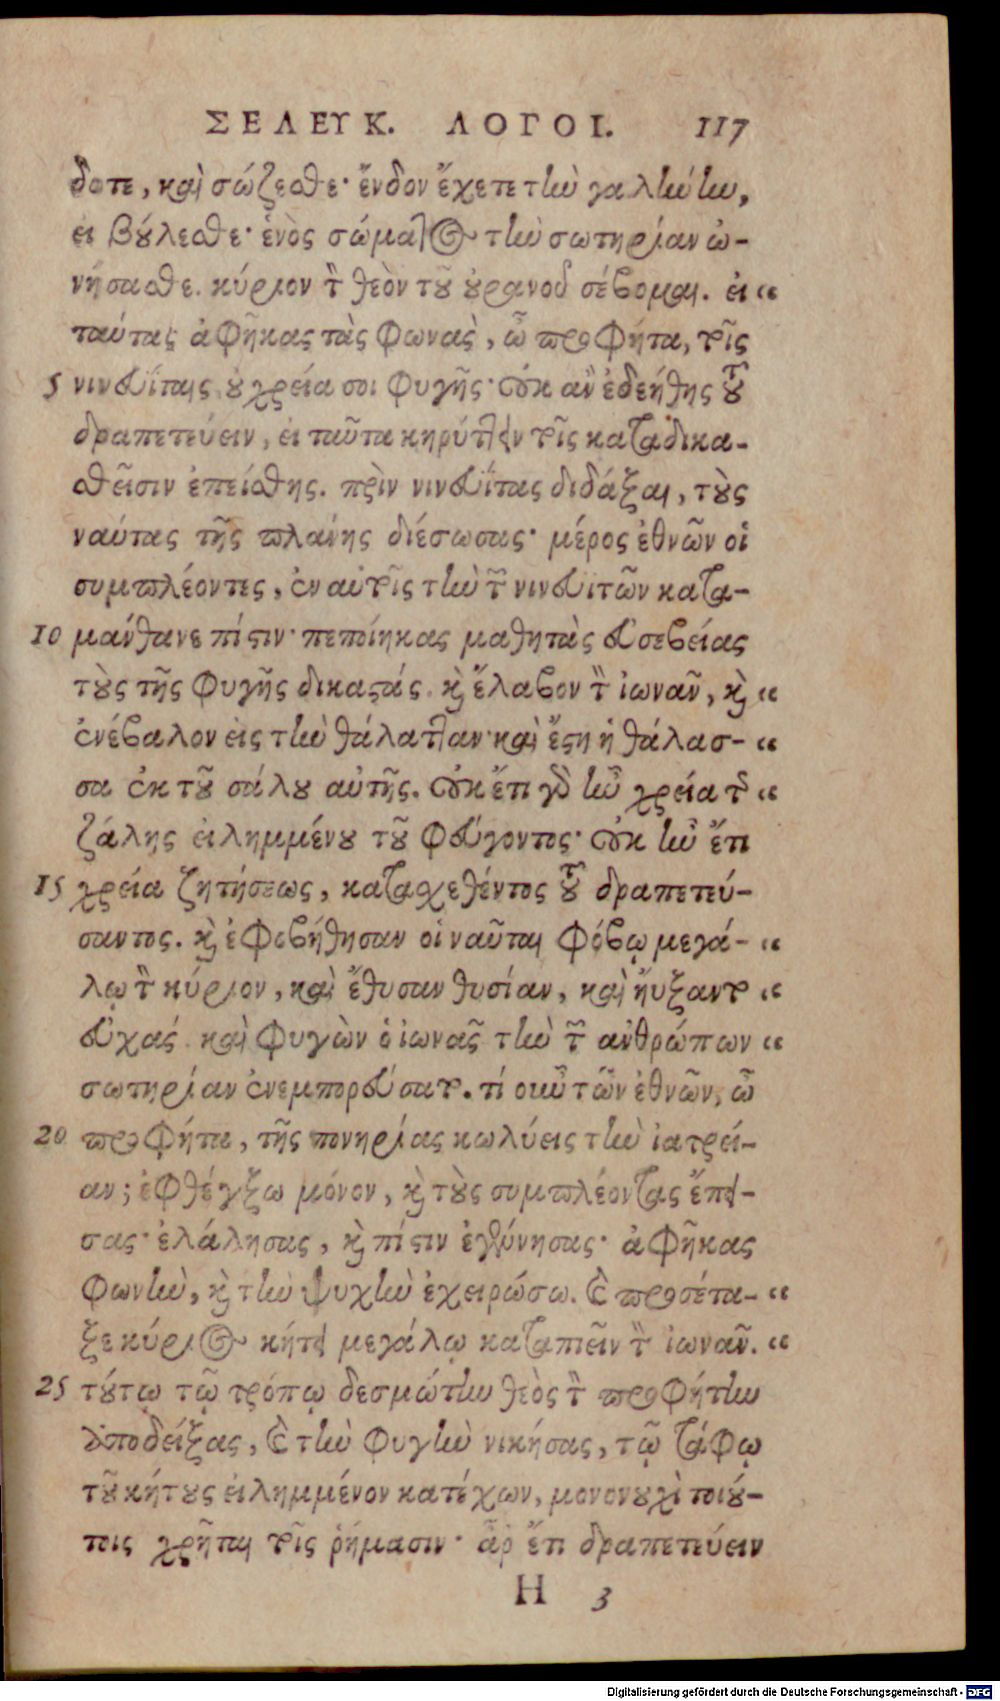 ΣΕΛΕΥΚ. ΛΟΓΟΙ. 117
δοτε, καὶ σώζεσθε· ἔνδον ἔχετε τὴν γαλήνην,
εἰ βούλεσθε· ἑνὸς σώματος τὴν σωτηρίαν ὠ-
νήσασθε. κύριον τὸν θεὸν τοῦ οὐρανοῦ σέβομαι. εἰ “
ταύτας ἀφῆκας τὰς φωνὰς, ὦ προφῆτα, τοῖς
5 νινευΐταις, οὐ χρεία σοι φυγῆς· οὐκ ἂν ἐδεήθης τοῦ
δραπετεύειν, εἰ ταῦτα κηρύττειν τοῖς καταδικα-
σθεῖσιν ἐπείσθης. πρὶν νινευΐτας διδάξαι, τοὺς
ναύτας τῆς πλάνης διέσωσας· μέρος ἐθνῶν οἱ
συμπλέοντες, ἐν αὐτοῖς τὴν τῶν νινευϊτῶν κατα-
10 μάνθανε πίστιν· πεποίηκας μαθητὰς εὐσεβείας
τοὺς τῆς φυγῆς δικαστάς. καὶ ἔλαβον τὸν ἰωνᾶν, καὶ “
ἐνέβαλον εἰς τὴν θάλατταν· καὶ ἔστη ἡ θάλασ- “
σα ἐκ τοῦ σάλου αὐτῆς. οὐκ ἔτι γὰρ ἦν χρεία τῆς “
ζάλης εἰλημμένου τοῦ φεύγοντος· οὐκ ἦν ἔτι
15 χρεία ζητήσεως, κατασχεθέντος τοῦ δραπετεύ-
σαντος. καὶ ἐφοβήθησαν οἱ ναῦται φόβῳ μεγά- “
λῳ τὸν κύριον, καὶ ἔθυσαν θυσίαν, καὶ ηὔξαντο “
εὐχάς. καὶ φυγὼν ὁ ἰωνᾶς τὴν τῶν ἀνθρώπων “
σωτηρίαν ἐνεμπορεύσατο. τί οὖν τῶν ἐθνῶν, ὦ
20 προφῆτα, τῆς πονηρίας κωλύεις τὴν ἰατρεί-
αν; ἐφθέγξω μόνον, καὶ τοὺς συμπλέοντας ἔπει-
σας· ἐλάλησας, καὶ πίστιν ἐγέννησας· ἀφῆκας
φωνὴν, καὶ τὴν ψυχὴν ἐχειρώσω. καὶ προσέτα- “
ξε κύριος κήτει μεγάλῳ καταπιεῖν τὸν ἰωνᾶν. “
25 τούτῳ τῷ τρόπῳ δεσμώτην θεὸς τὸν προφήτην
ὑποδείξας, καὶ τὴν φυγὴν νικήσας, τῷ τάφῳ
τοῦ κήτους εἰλημμένον κατέχων, μονονουχὶ τοιού-
τοις χρῆται τοῖς ῥήμασιν· ἆρ ἔτι δραπετεύειν
Η 3
Digitalisierung gefördert durch die Deutsche Forschungsgemeinschaft - DFG